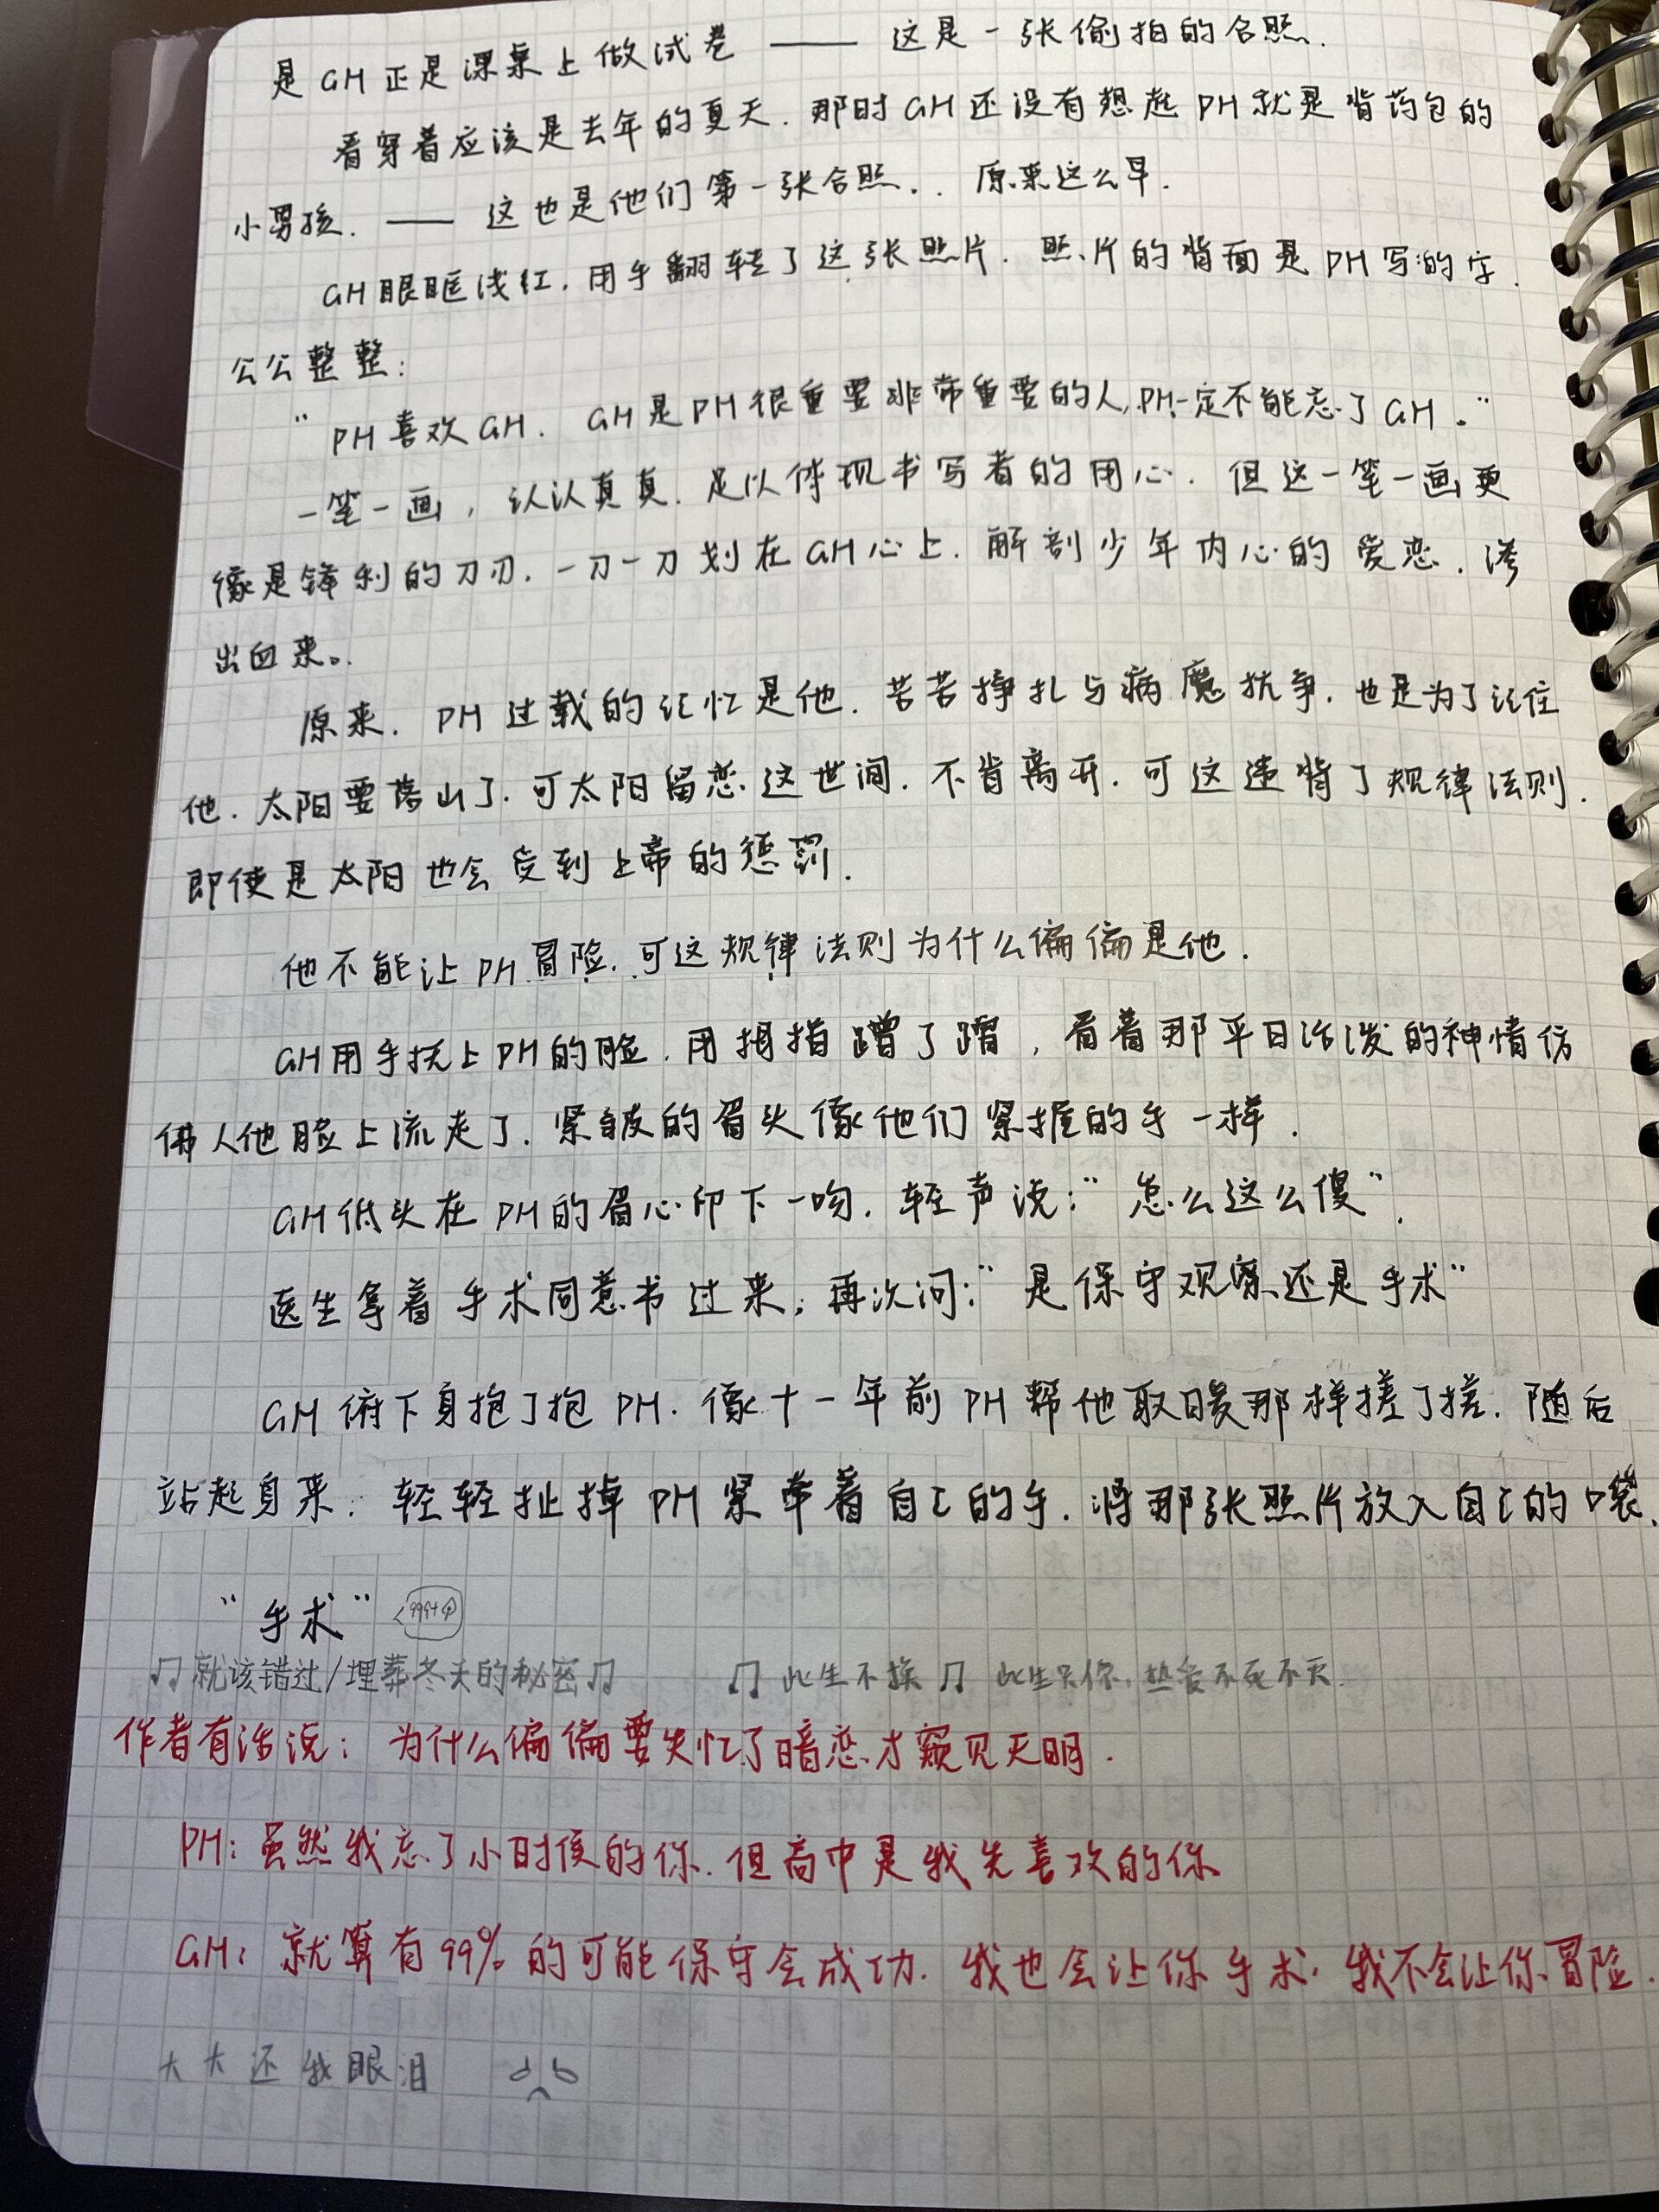 是GH正是课桌上做试卷——这是一张偷拍的合照.
看穿着应该是去年的夏天.那时GH还没有想起PH就是背药包的
小男孩.——这也是他们第一张合照..原来这么早.
GH眼眶浅红.用手翻转了这张照片.照片的背面是PH写的字.
公公整整:
"PH喜欢GH.GH是PH很重要非常重要的人,PH一定不能忘了GH。"
一笔一画,认认真真.足以体现书写者的用心.但这一笔一画更
像是锋利的刀刃.一刀一刀划在GH心上.解剖少年内心的爱恋.渗
出血来。.
原来.PH过载的记忆是他.苦苦挣扎与病魔抗争.也是为了记住
他.太阳要落山了.可太阳留恋这世间.不肯离开.可这违背了规律法则.
即使是太阳也会受到上帝的惩罚.
他不能让PH冒险.可这规律法则为什么偏偏是他.
GH用手抚上PH的脸.用拇指蹭了蹭,看着那平日活泼的神情仿
佛人他脸上流走了.紧皱的眉头像他们紧握的手一样.
GH低头在PH的眉心印下一吻.轻声说:"怎么这么傻".
医生拿着手术同意书过来,再次问:"是保守观察还是手术"
GH俯下身抱了抱PH.像十一年前PH帮他取暖那样搓了搓.随后
站起身来.轻轻扯掉PH紧牵着自己的手.将那张照片放入自己的口袋.
"手术" 999+
♫就该错过/埋葬冬天的秘密♫ ♫此生不换♫ 此生只你,热爱不死不灭.
作者有话说:为什么偏偏要失忆了暗恋才窥见天明.
PH:虽然我忘了小时候的你.但高中是我先喜欢的你
GH:就算有99%的可能保守会成功.我也会让你手术.我不会让你冒险.
大大还我眼泪